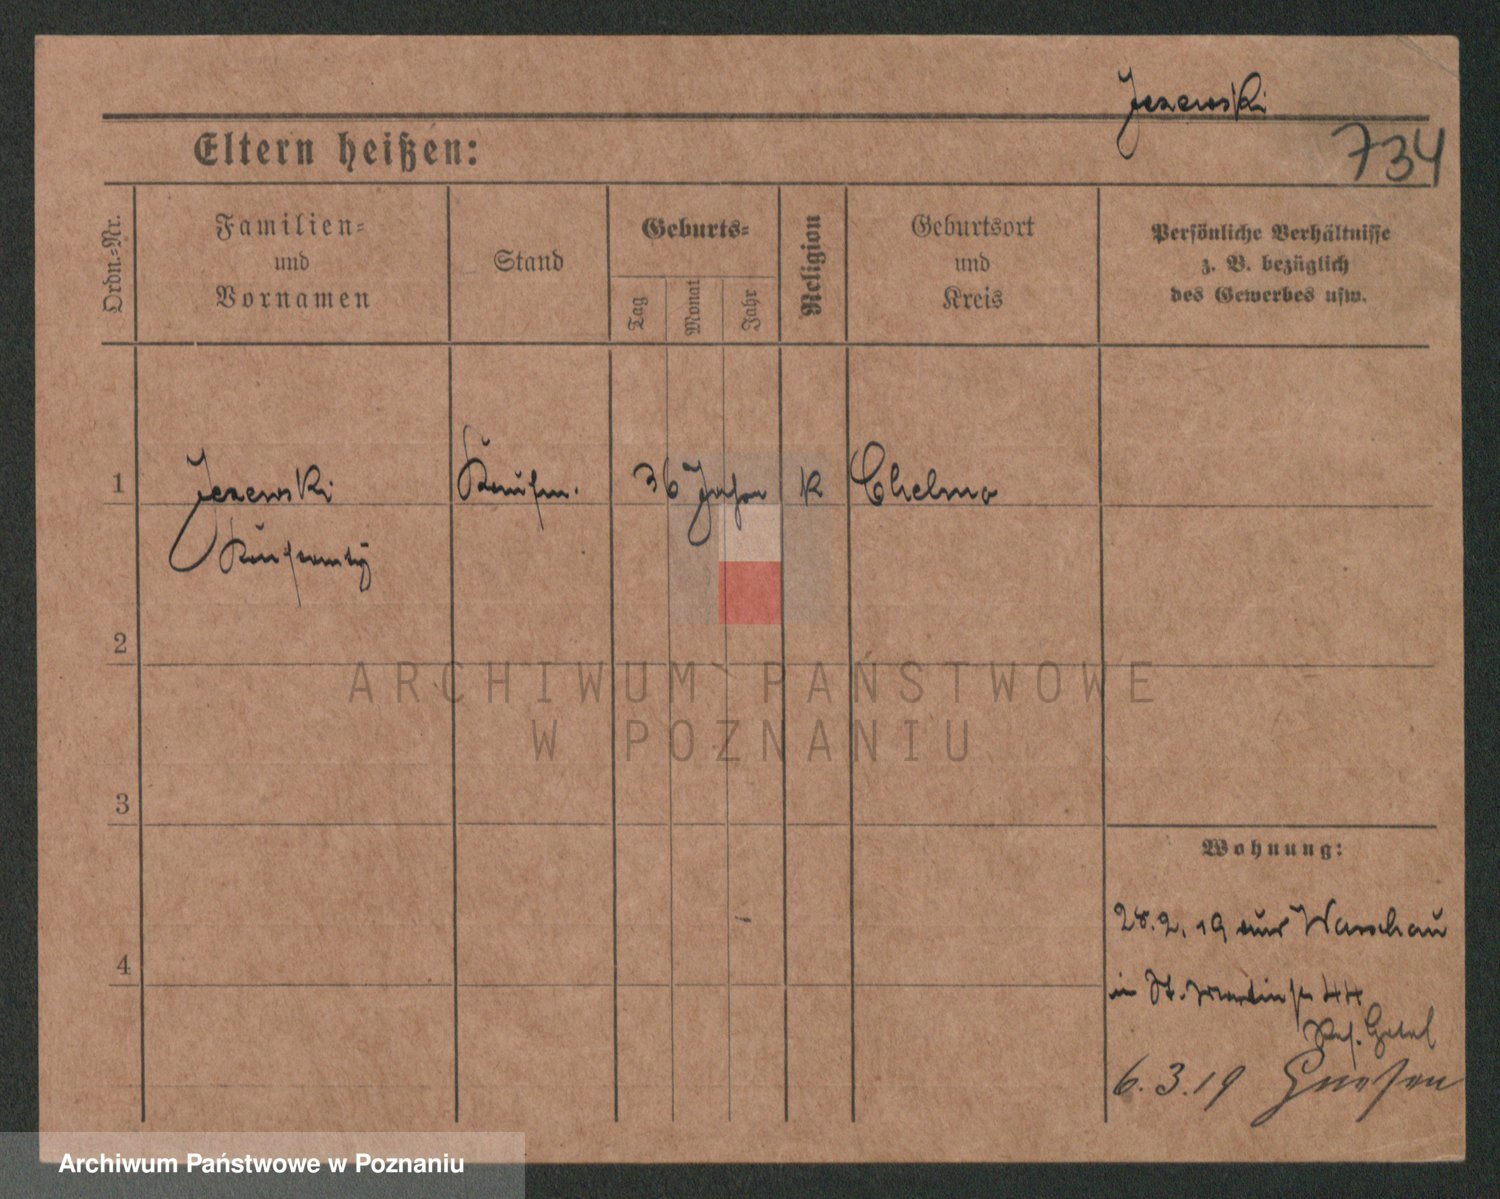 Jezewski
734
Eltern heißen:
Ordn.-Nr.
Familien-
und
Vornamen
Stand
Geburts-
Tag
Monat
Jahr
Religion
Geburtsort
und
Kreis
Persönliche Verhältnisse
z. B. bezüglich
des Gewerbes usw.
1
Jezewski
Kaufm.
36 Jahre
K
Chelmo
2
3
4
Wohnung:
28.2.19 aus Warschau
in St. Martinstr 44
6.3.19 Gnesen
ARCHIWUM PAŃSTWOWE
W POZNANIU
Archiwum Państwowe w Poznaniu